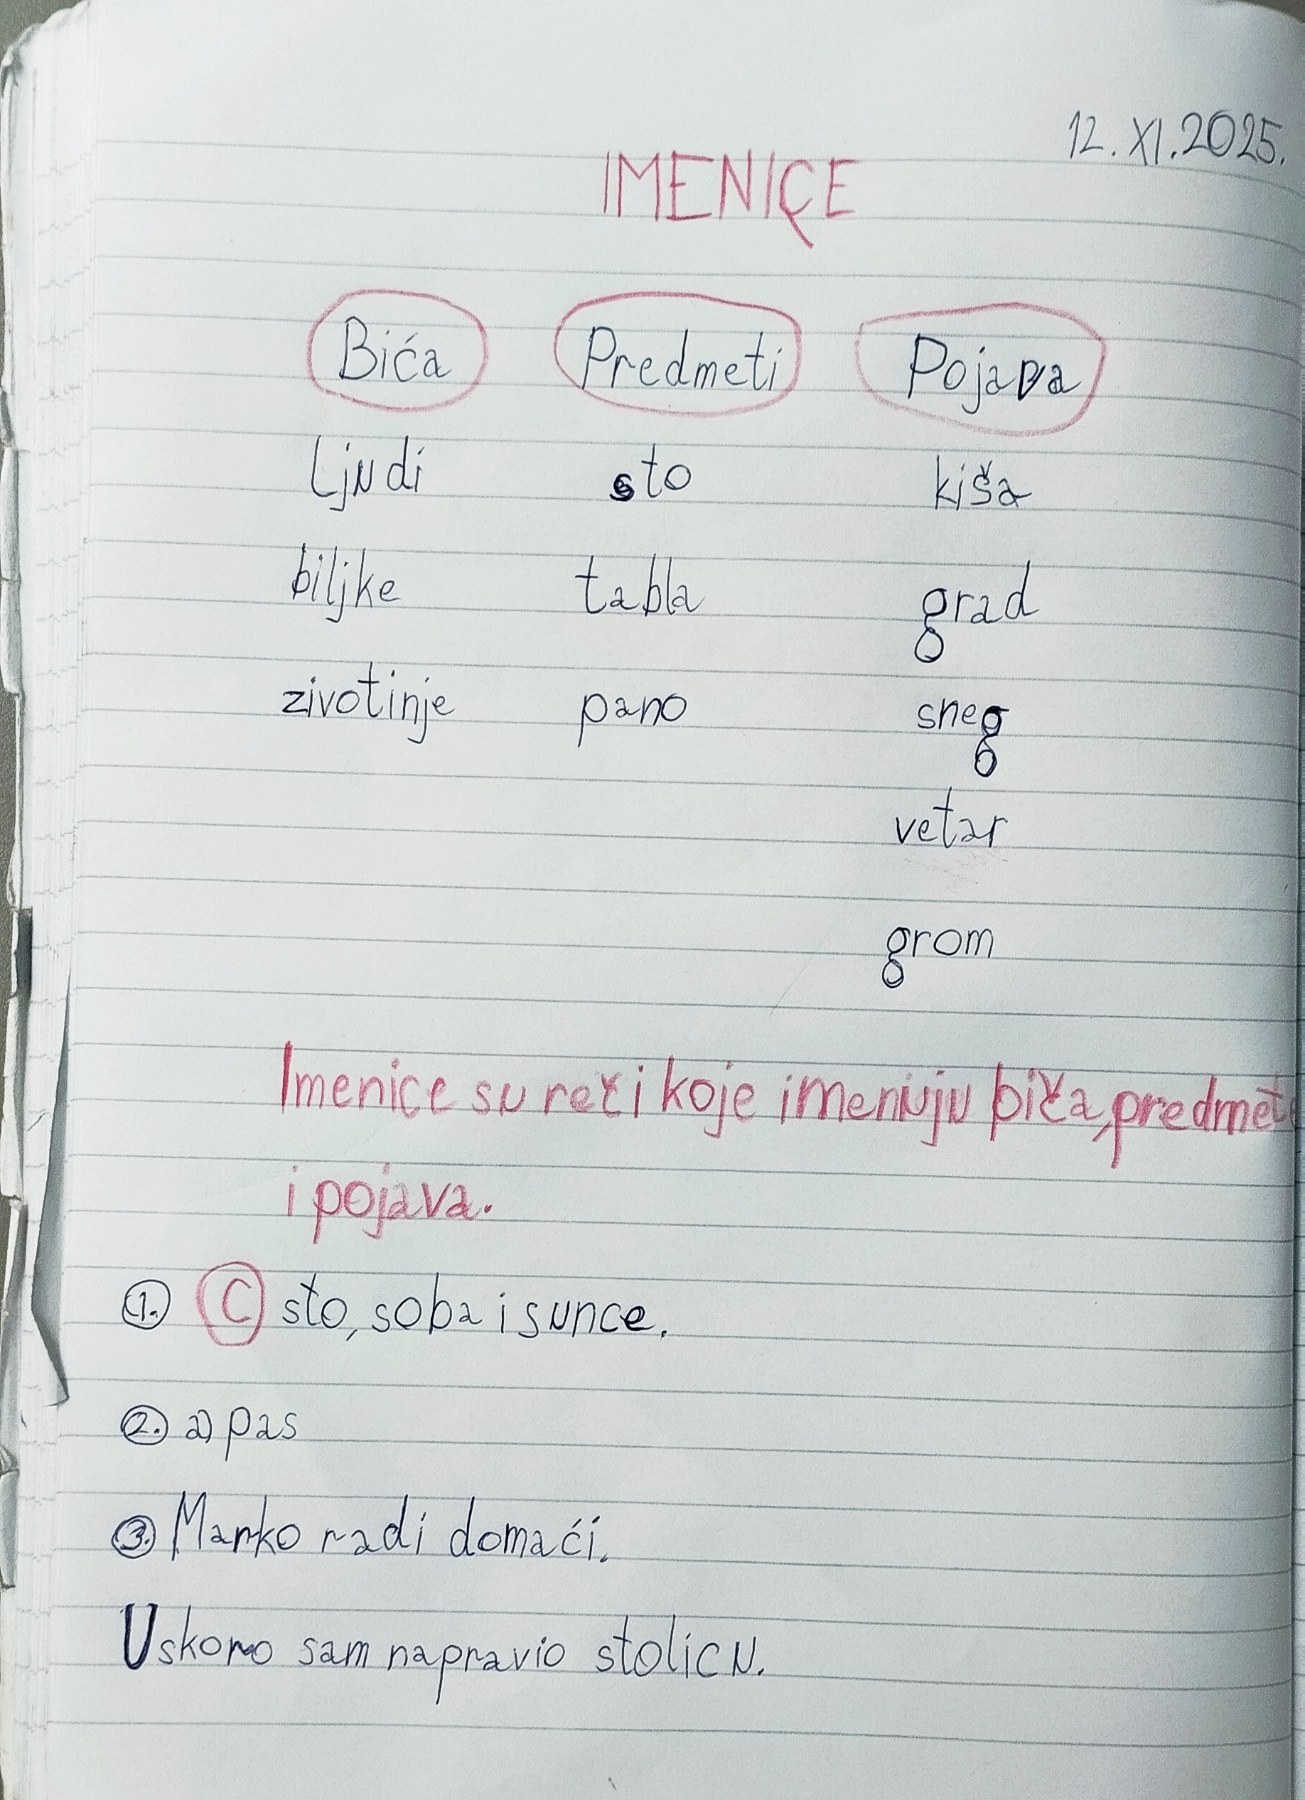 12. XI. 2025.
IMENICE
Bića Predmeti Pojava
Ljudi sto kiša
biljke tabla grad
zivotinje pano sneg
vetar
grom
Imenice su reči koje imenuju biča, predmet
i pojava.
1. C sto, soba i sunce.
2. a) pas
3. Marko radi domaći.
Uskoro sam napravio stolicu.